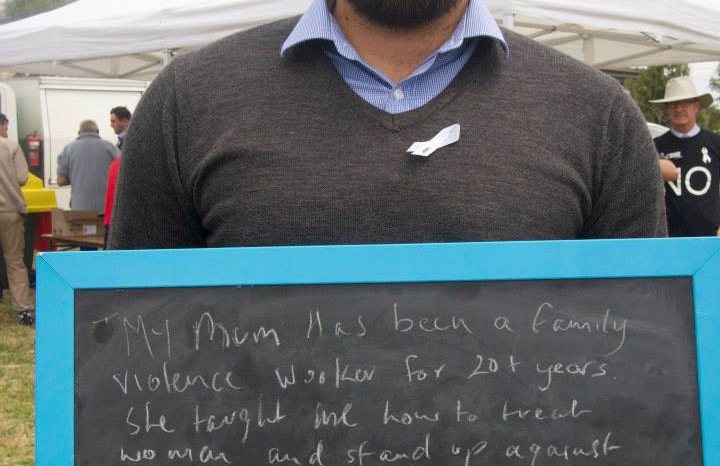 NO
"My Mum Has been a family
violence worker for 20+ years.
She taught me how to treat
woman and stand up against